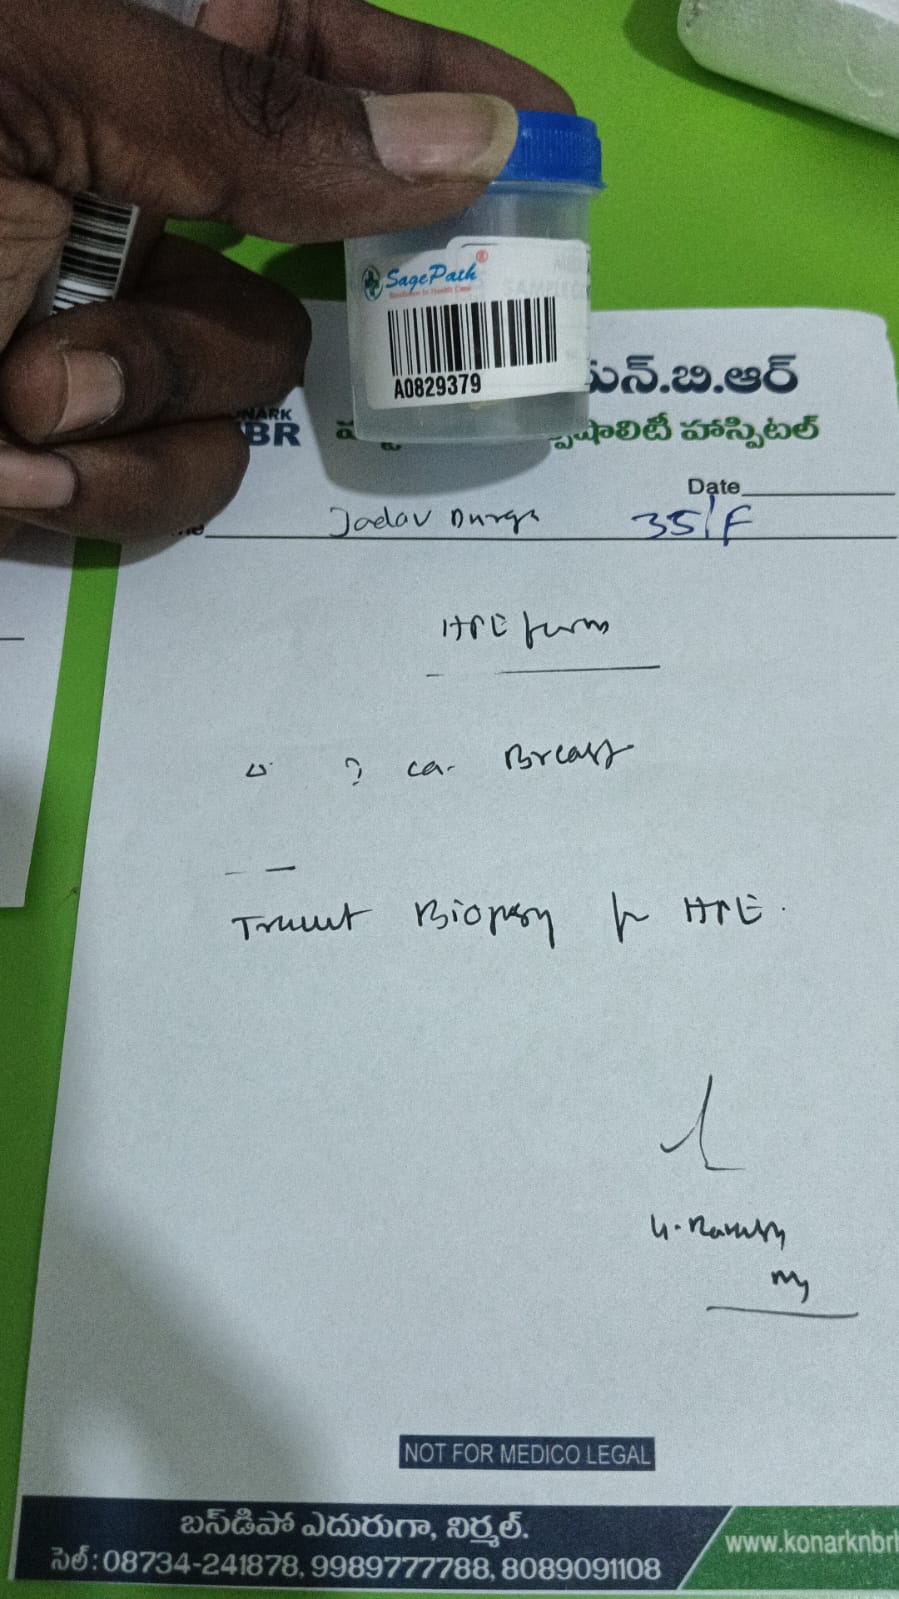 SagePath®
Excellence In Health Care
A0829379
న్.బి.ఆర్
NARK
BR
స్పెషాలిటీ హాస్పిటల్
Date
Jadav Durga 35/F
HPE form
? ca. Breast
Trucut Biopsy for HPE.
NOT FOR MEDICO LEGAL
బస్‌డిపో ఎదురుగా, నిర్మల్.
సెల్ : 08734-241878, 9989777788, 8089091108
www.konarknbrh